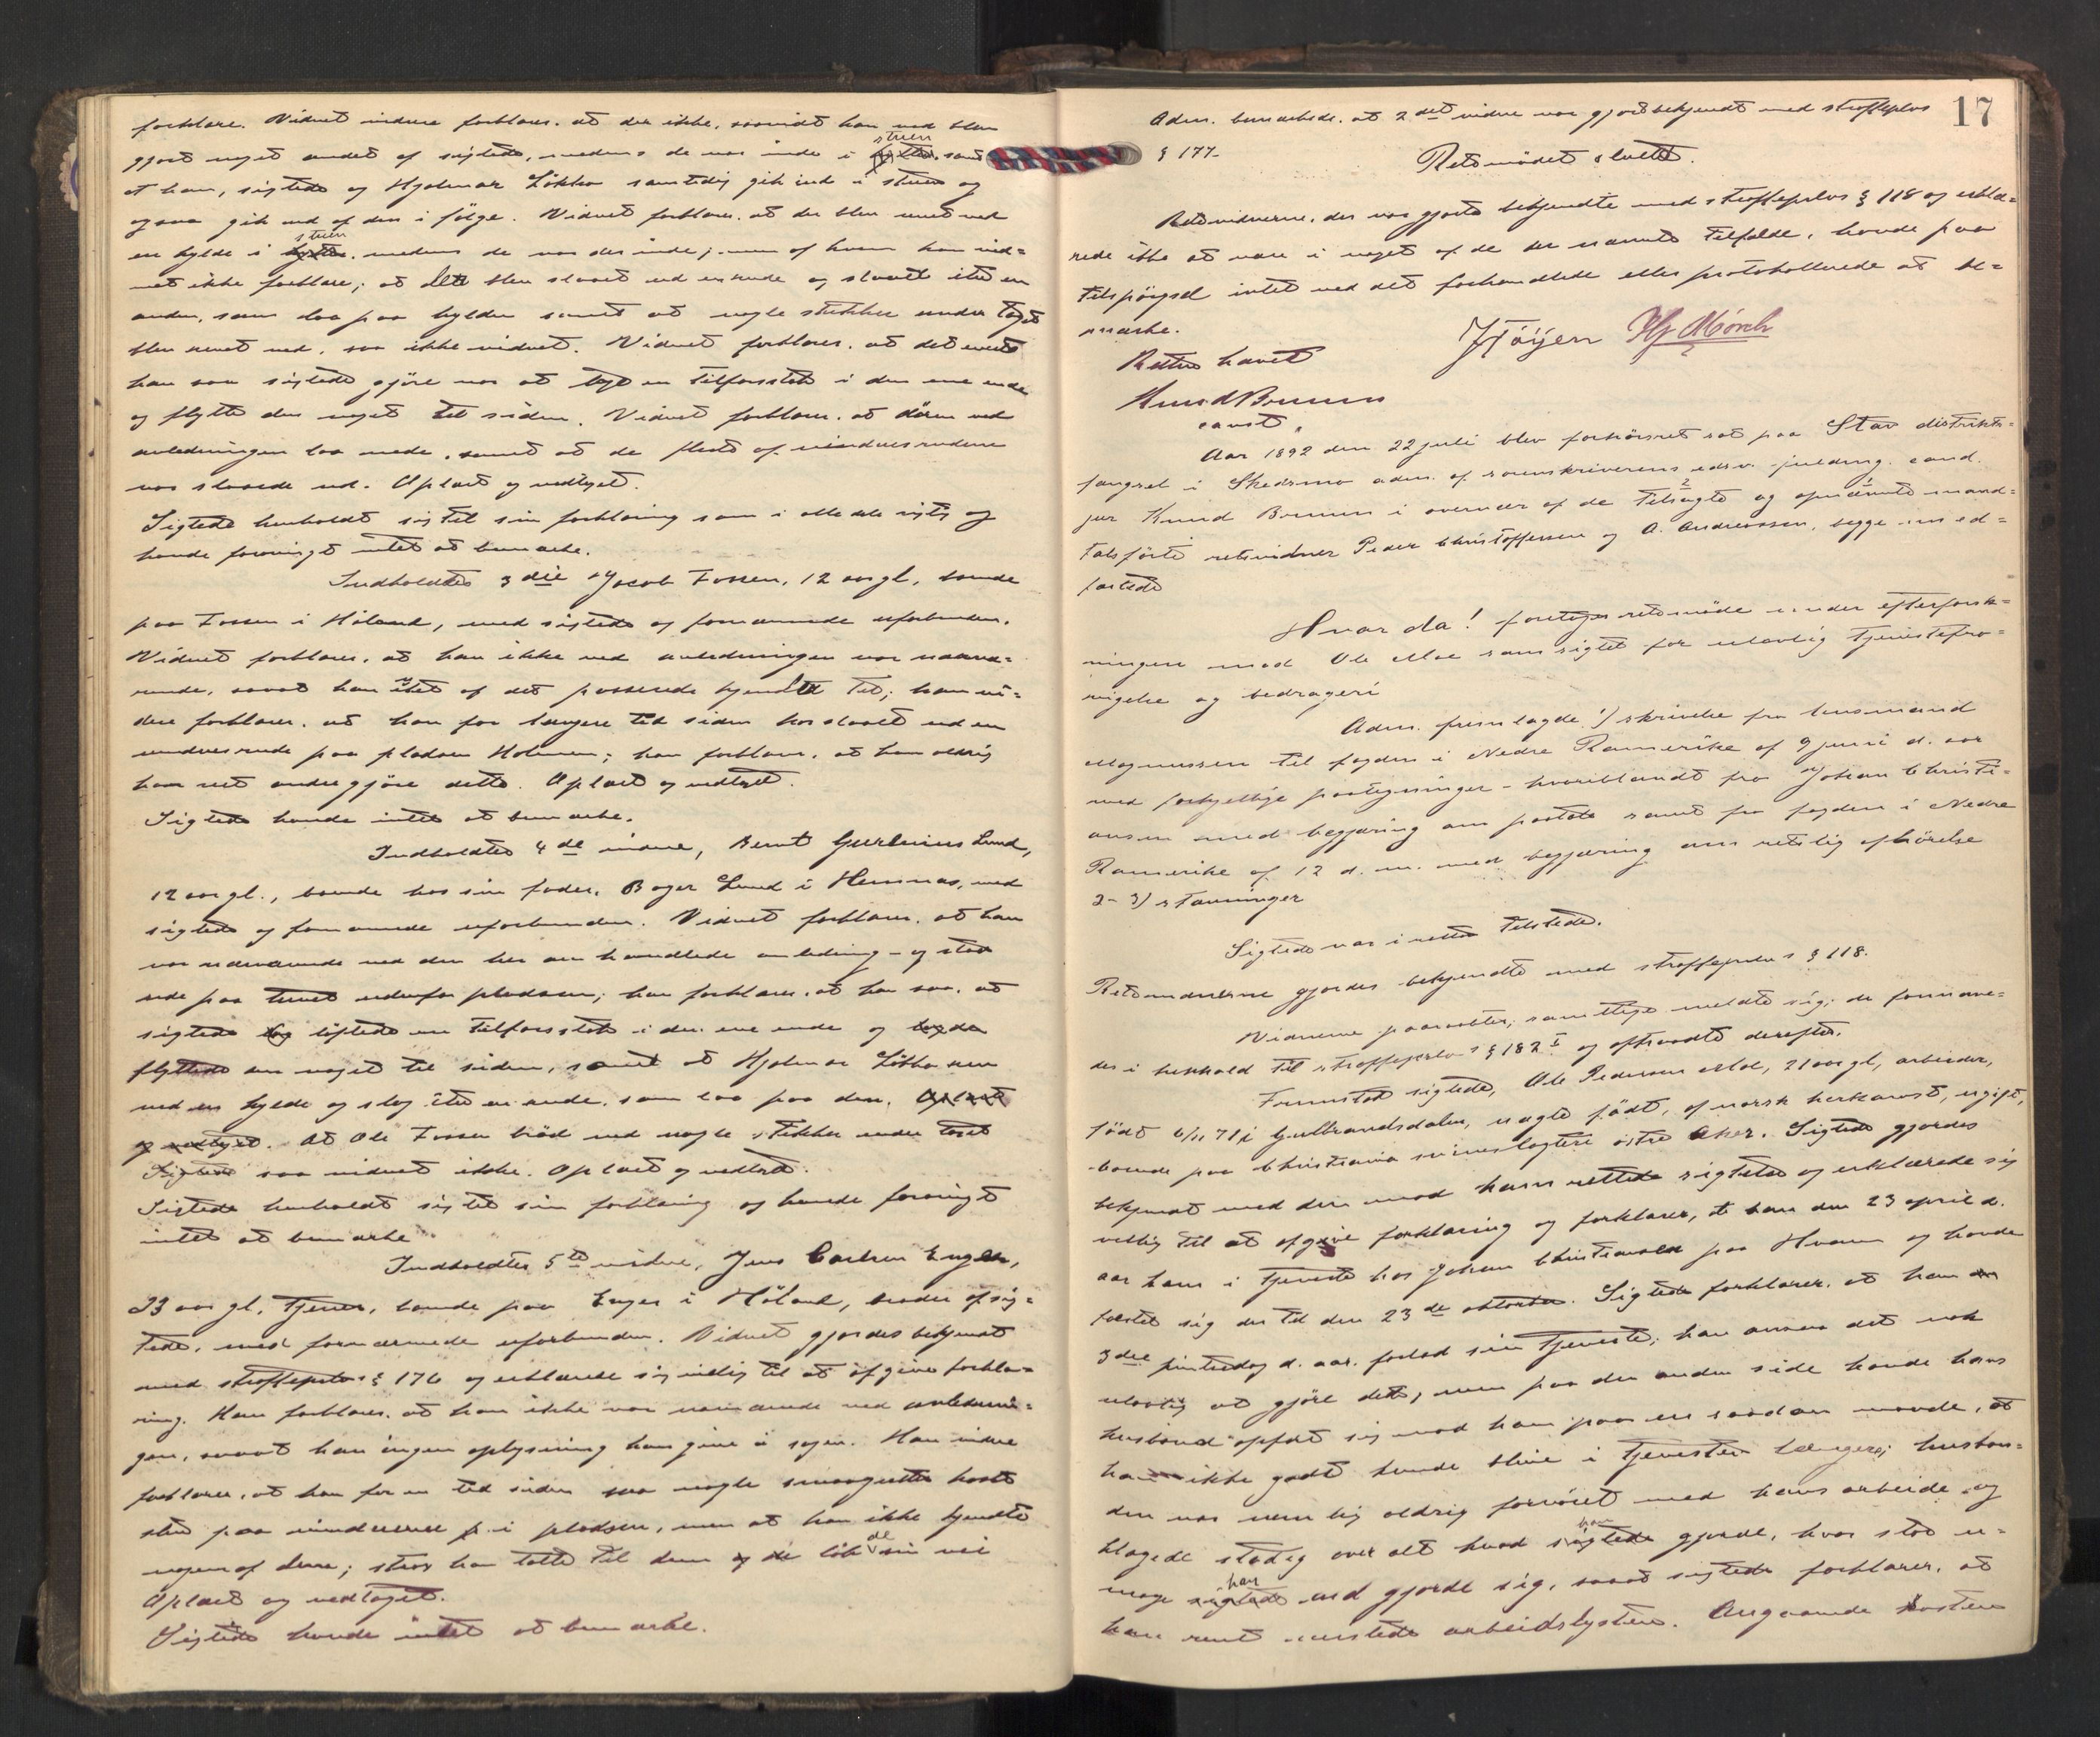 forklare. Vidnet videre forklarer, at der ikke, saavidt han ved blev
gjort noget andet af sigtede, medens de var inde i stuen samt
at han, sigtede og Hjalmar Løkke samtidig gik ind i stuen og
ogsaa gik ud af den i følge. Vidnet forklarer, at der blev revet ned
en hylde i stuen medens de var der inde; men af hvem kan vid-
net ikke forklare; at der blev slaaet ud en rude og slaaet itu en
anden, som laa paa hylden samt at nogle stikker under taget
blev revet ned, saa ikke vidnet. Vidnet forklarer, at det eneste
han saa sigtede gjøre var at løfte en tilfarsstok i den ene ende
og flytte den noget til siden. Vidnet forklarer, at døren ved
anledningen laa nede, samt at de fleste af vinduesruderne
var slaaede ud. Oplæst og vedtaget.
Sigtede henholdt sig til sin forklaring som i alle dele rigtig og
havde forøvrigt intet at bemærke.
Indkaldtes 3die Jacob Fossen, 12 aar gl., boende
paa Fossen i Høland, med sigtede og fornærmede uforbunden.
Vidnet forklarer, at han ikke ved anledningen var nærvæ-
rende, saaat han intet af det passerede kjendte til; han vi-
dere forklarer, at han for længere tid siden har slaaet ud en
vinduesrude paa pladsen Holmen; han forklarer, at han aldrig
har set andre gjøre dette. Oplæst og vedtaget.
Sigtede havde intet at bemærke.
Indkaldtes 4de vidne, Bernt Lund,
12 aar gl., boende hos sin fader, Lund i Hemnæs, med
sigtede og fornærmede uforbunden. Vidnet forklarer, at han
var nærværende ved den her omhandlede anledning og stod
ude paa tunet udenfor pladsen; han forklarer, at han saa, at
sigtede løftede en tilfarsstok i den ene ende og
flyttede den noget til siden, samt at Hjalmar Løkke rev
ned en hylde og slog itu en rude, som laa paa den. Oplæst
og vedtaget. At Ole Fossen brød ned nogle stikker under taget
Sigtede saa vidnet ikke. Oplæst og vedtaget.
Sigtede henholdt sig til sin forklaring og havde forøvrigt
intet at bemærke
Indkaldtes 5te vidne, Jens Carlsen Enger,
23 aar gl., tjener, boende paa Enger i Høland, broder af sig-
tede, med fornærmede uforbunden. Vidnet gjordes bekjendt
med straffeprlov § 176 og erklærede sig villig til at afgive forkla-
ring. Han forklarer, at han ikke var nærværende ved anlednin-
gen, saaat han ingen oplysning kan give i sagen. Han videre
forklarer, at han for en tid siden saa nogle smaagutter kaste
sten paa vinduerne i pladsen, men at han ikke kjendte
nogen af disse; strax han talte til dem løb de sin vei
Oplæst og vedtaget.
Sigtede havde intet at bemærke.
17
Adm. bemærkede, at 2det vidne var gjort bekjendt med straffeprlov
§ 177.
Retsmødet sluttet.
Retsvidnerne, der var gjorte bekjendte med straffeprlov § 118 og erklæ-
rede ikke at være i noget af de der nævnte tilfælde, havde paa
tilspørgsel intet ved det forhandlede eller protokollerede at be-
mærke.
Retten hævet
Knud Bomm
const
Aar 1892 den 22 juli blev forhørsret sat paa Stav distrikts-
fængsel i Skedsmo adm. af sorenskriverens edsv. fuldmg. cand.
jur Knud i overvær af de 2 tilsagte og opnævnte mand-
talsførte retsvidner Peder Christoffersen og A. Andreassen, begge
Hvor da! foretoges retsmøde under efterforsk-
ningen mod Ole Moe som sigtet for ulovlig tjenestefra-
vigelse og bedrageri
Adm. fremlagde 1) skrivelse fra lensmand
Magnussen til fogden i Nedre Romerike af 9 juni d. aar
med forskjellige paategninger – hvoriblandt fra Johan Christi-
ansen med begjæring om paatale samt fra fogden i Nedre
Romerike af 12 d. m. med begjæring om retslig afhørelse
2- 3) stævninger
Sigtede var i retten tilstede.
Retsvidnerne gjordes bekjendte med straffeprlovs § 118.
Vidnerne paaraabtes, samtlige meldte sig; de formane-
des i henhold til straffeprlovs § 182 I og aftraadte derefter.
Fremstod sigtede, Ole Pedersen Moe, 21 aar gl, arbeider,
født 6/11 71 i Gulbrandsdalen, døbt, af norsk herkomst, ugift,
boende paa Christiania svineslagteri østre Aker. Sigtede gjordes
bekjendt med den mod ham rettede sigtelse og erklærede sig
villig til at afgive forklaring og forklarer, at han den 23 april d.
aar kom i tjeneste hos Johan Christiansen paa Hvam og havde
fæstet sig der til den 23de oktober. Sigtede forklarer, at han
3die pintsedag d. aar. forlod sin tjeneste; han ansaa det nok
ulovlig at gjøre dette, men paa den anden side havde hans
husbond opført sig mod ham paa en saadan maade, at
han ikke godt kunde blive i tjenesten længere; husbon-
den var nemlig aldrig fornøiet med hans arbeide og
klagede stadig over alt hvad han gjorde, hvor stor u-
mage han end gjorde sig, saaat sigtede forklarer, at
han rent mistede arbeidslysten. Angaaende kosten